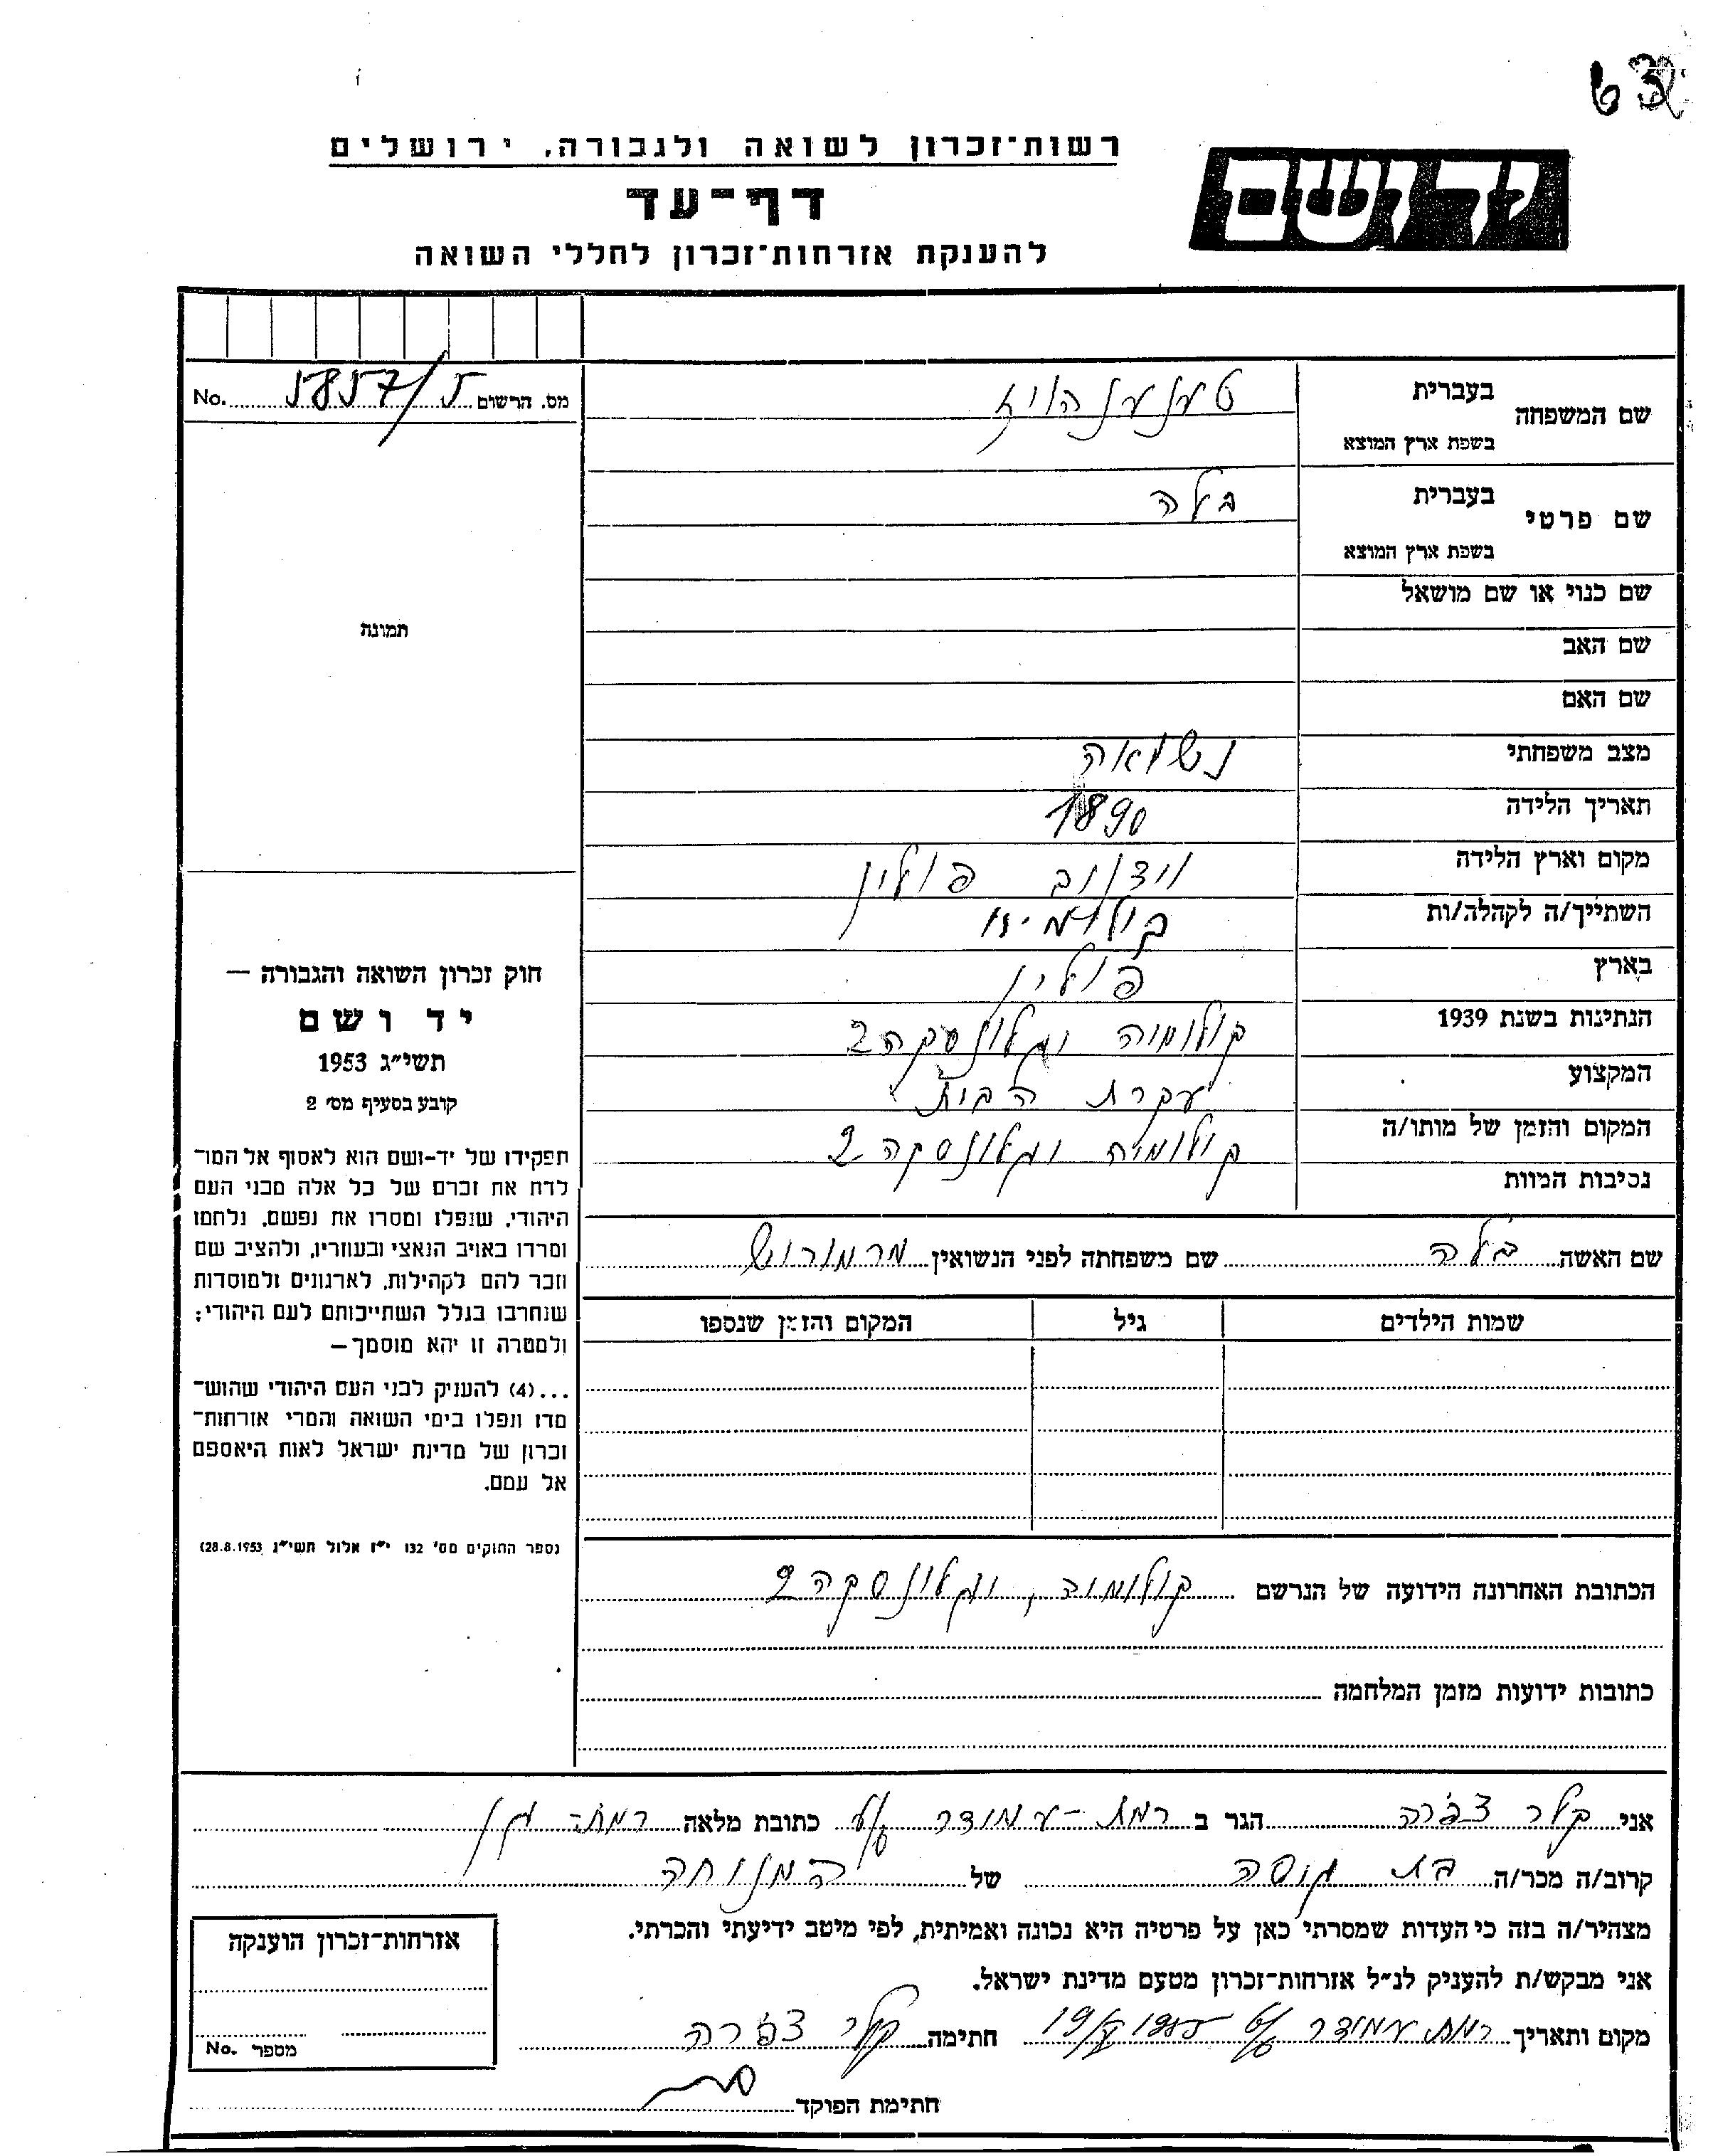 63
רשות־זכרון לשואה ולגבורה, ירושלים
יד ושם
דף־עד
להענקת אזרחות־זכרון לחללי השואה
מס. הרשום 5857/5 No.
שם המשפחה בעברית טענענהויז
בשפת ארץ המוצא
שם פרטי בעברית בלה
בשפת ארץ המוצא
שם כנוי או שם מושאל
שם האב
שם האם
מצב משפחתי נשואה
תאריך הלידה 1890
מקום וארץ הלידה פולין
השתייך/ה לקהלה/ות
בארץ פולין
הנתינות בשנת 1939 קולומיה 2
המקצוע עקרת הבית
המקום והזמן של מותו/ה קולומיה 2
נסיבות המוות
שם האשה בלה שם משפחתה לפני הנשואין מרמורוש
שמות הילדים גיל המקום והזמן שנספו
הכתובת האחרונה הידועה של הנרשם קולומיה, 2
כתובות ידועות מזמן המלחמה
תמונה
חוק זכרון השואה והגבורה —
יד ושם
תשי״ג 1953
קובע בסעיף מס׳ 2
תפקידו של יד-ושם הוא לאסוף אל המו־
לדת את זכרם של כל אלה מבני העם
היהודי, שנפלו ומסרו את נפשם, נלחמו
ומרדו באויב הנאצי ובעוזריו, ולהציב שם
וזכר להם לקהילות, לארגונים ולמוסדות
שנחרבו בגלל השתייכותם לעם היהודי;
ולמטרה זו יהא מוסמך—
...(4) להעניק לבני העם היהודי שהוש־
מדו ונפלו בימי השואה והמרי אזרחות־
זכרון של מדינת ישראל לאות היאספם
אל עמם.
(ספר החוקים מס׳ 132 י״ז אלול תשי״ג 28.8.1953)
אני קלר צפרה הגר ב רמת-עמידר כתובת מלאה רמת-גן
קרוב/ה מכר/ה בת גיסה של המנוחה
מצהיר/ה בזה כי העדות שמסרתי כאן על פרטיה היא נכונה ואמיתית, לפי מיטב ידיעתי והכרתי.
אני מבקש/ת להעניק לנ״ל אזרחות־זכרון מטעם מדינת ישראל.
מקום ותאריך רמת עמידר חתימה קלר צפרה
חתימת הפוקד
אזרחות־זכרון הוענקה
מספר No.